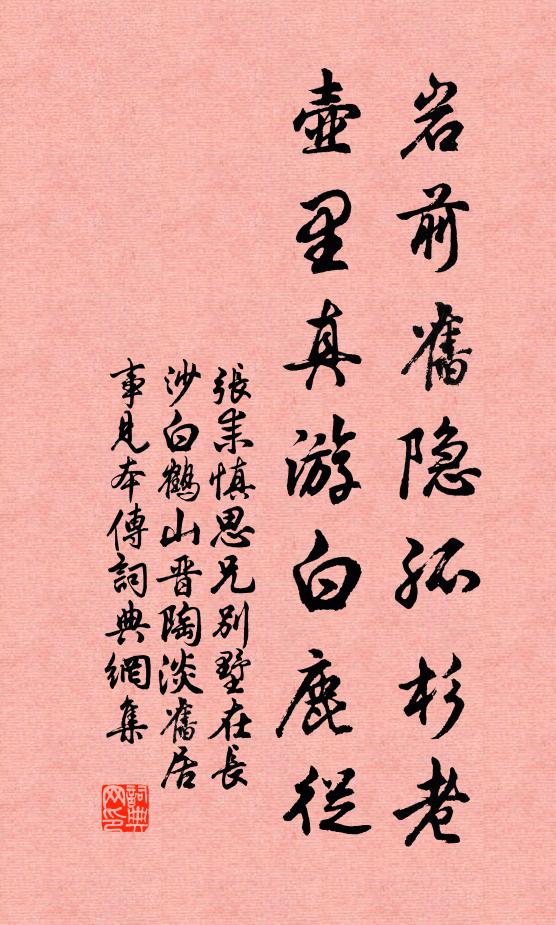 岩前舊隐孤杉老
壺里真游白鹿從
張耒慎思兄別墅在長
沙白鶴山晋陶淡舊居
事見本傳詞典網集
詞典网印